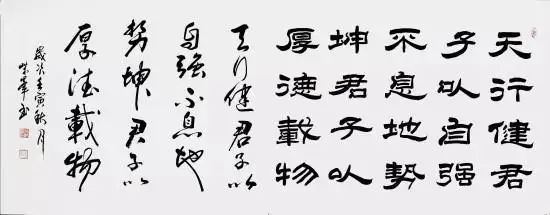 天行健君
子以自强
不息地勢
坤君子以
厚德載物
天行健君子以
自強不息地
勢坤君子以
厚德載物
歲次壬寅秋月
書